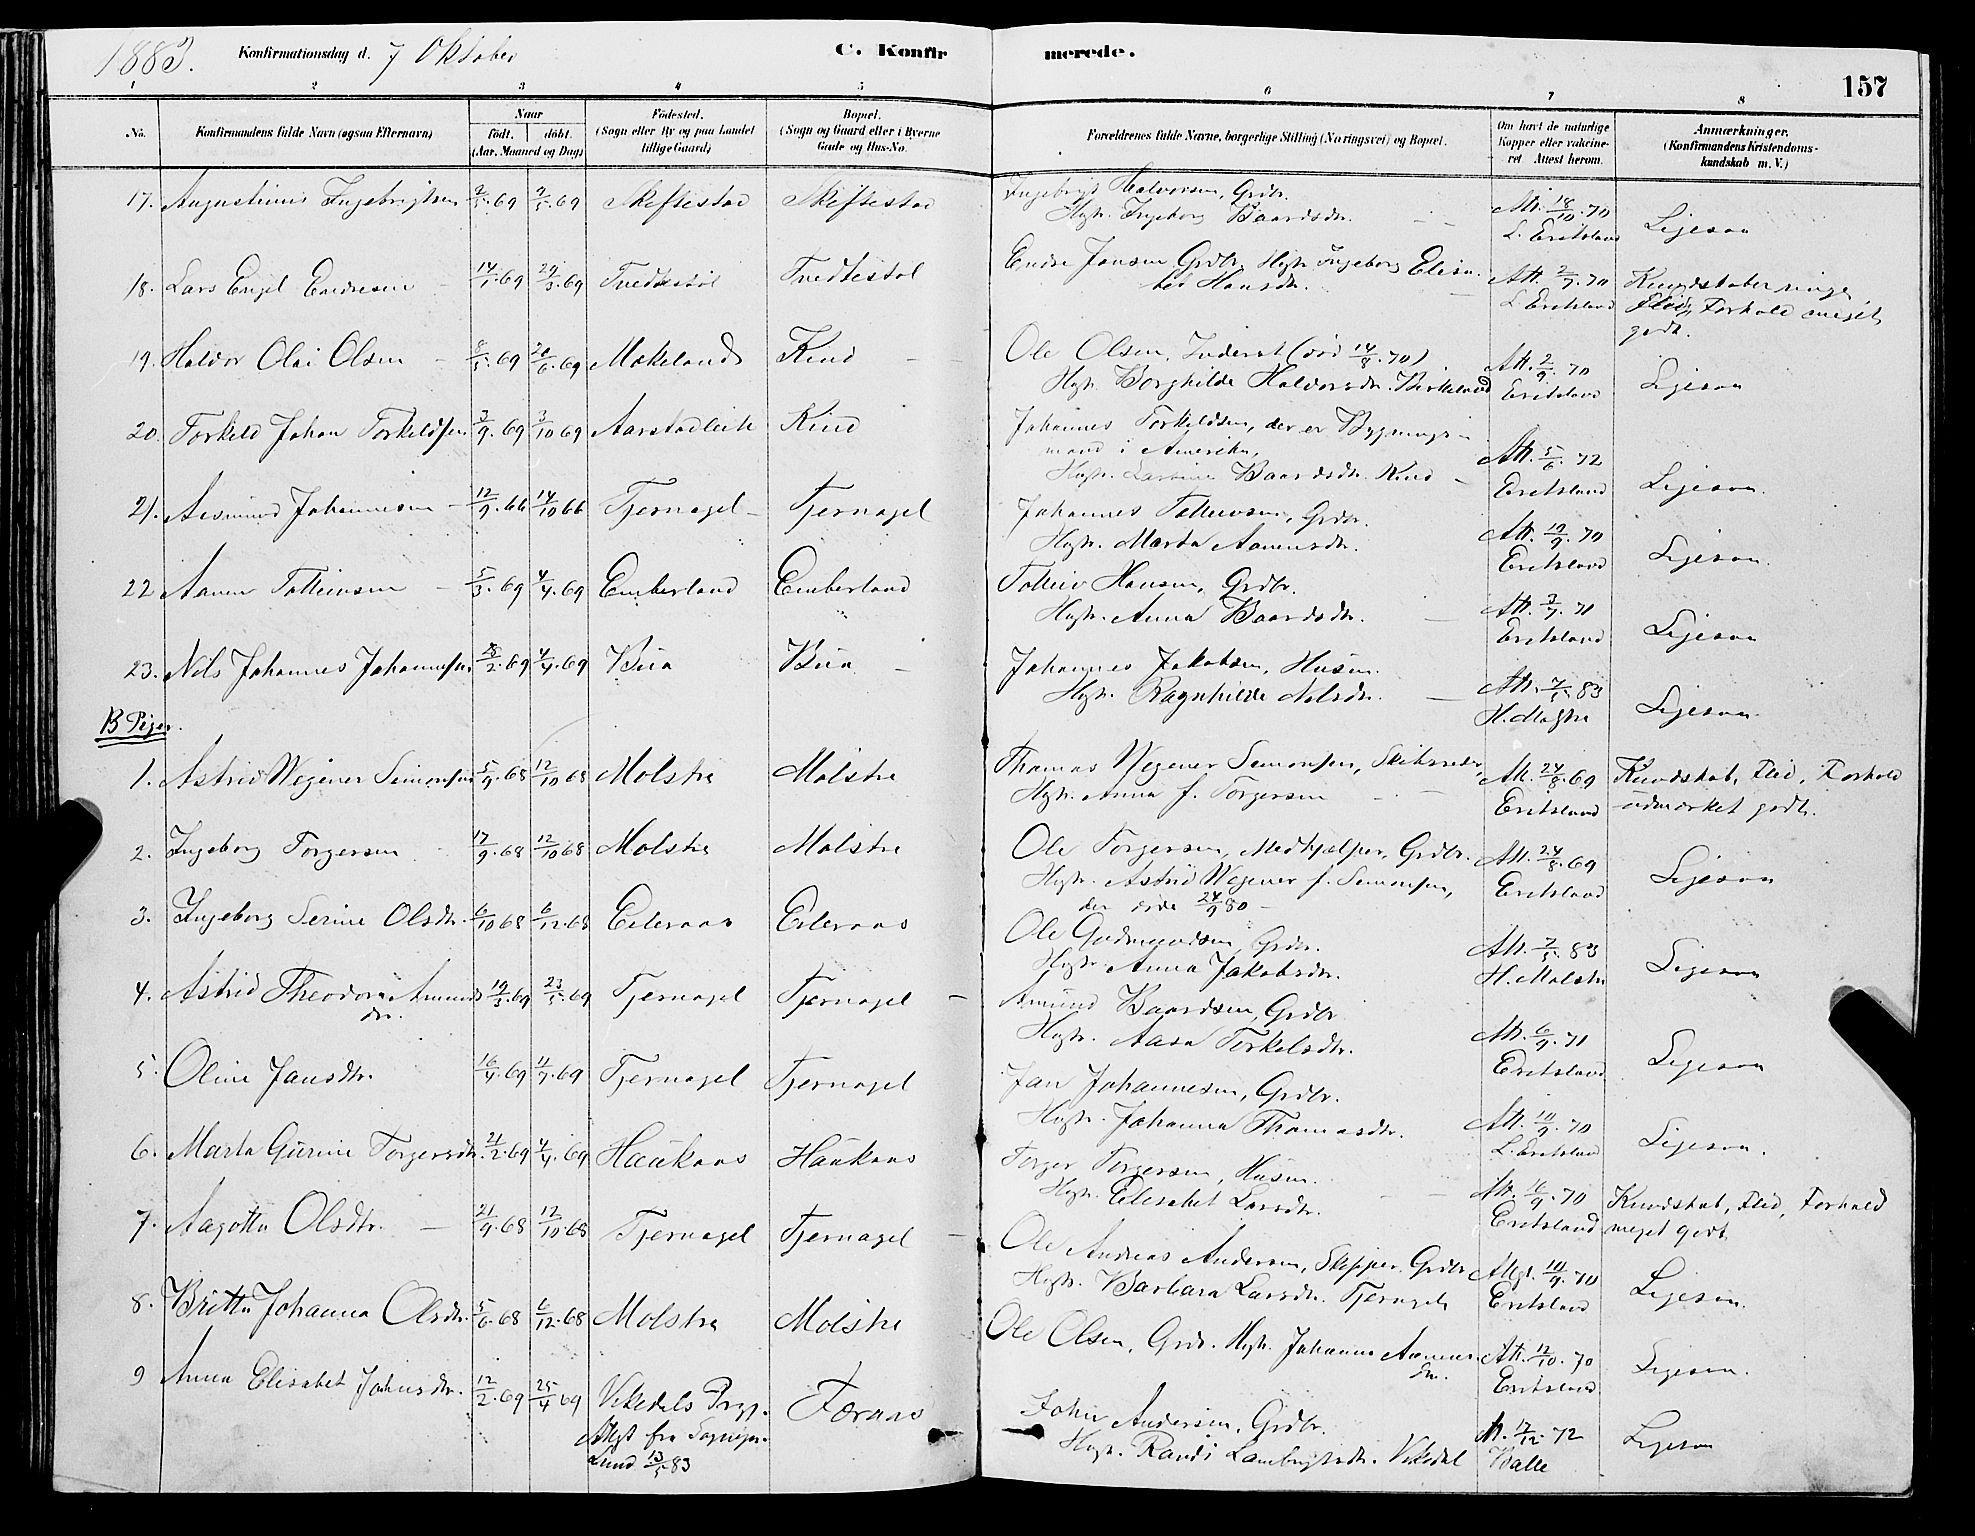 1883. Konfirmationsdag d. 7 Oktober C. Konfirmerede. 157
1 2 3 4 5 6 7 8
No. Konfirmandens fulde Navn (ogsaa Efternavn) Naar født. døbt. (Aar, Maaned og Dag) Fødested. (Sogn eller By og paa Landet tillige Gaard) Bopæl. (Sogn og Gaard eller i Byerne Gade og Hus-No. Forældrenes fulde Navne, borgerlige Stilling (Næringsvei) og Bopæl. Om havt de naturlige Kopper eller vakcineret. Attest herom. Anmærkninger. (Konfirmandens Kristendomskundskab m. V.)
17. Augustinus Ingebrigtsen 2/5.69 9/5.69 Skeftestad Skeftestad Ingebrigt Halvorsen, Grdbr.
Hstr. Ingeborg Baardsdtr. Att. 18/10.70 L. Eritsland Ligesaa
18. Lars Engel Endresen 14/1.69 29/3.69 Tvedtestøl Tvedtestøl Endre Jansen Grdbr. Hstr. Ingeborg Elisabet Hansdtr. Att. 2/9.70 L. Eritsland Kundskaber ringe, Flid, Forhold meget godt.
19. Haldor Olai Olsen 8/5.69 20/6.69 Mokeland Kind Ole Olsen, Inderst (død 14/8.70)
Hstr. Borghilde Haldorsdtr. Birkeland Att. 2/9.70 Eritsland Ligesaa
20. Torkeld Johan Torkeldsen 3/9.69 3/10 69 Aarstadleite Kind Johannes Torkeldsen, der er Bygningsmand i Amerika,
Hstr. Larsine Baardsdtr. Kind Att. 5/6.72 Eritsland Ligesaa.
21. Aasmund Johannesen 12/9.66 14/10 66 Tjernagel Tjernagel Johannes Tolleivsen, Grdbr.
Hstr. Marta Aamunsdtr. Att. 19/9.70 Eritsland Ligesaa.
22 Aamun Tolleivsen 5/3.69 4/4.69 Emberland Emberland Tolleiv Hansen, Grdbr.
Hstr. Anna Baardsdtr. Att. 3/7.71 Eritsland Ligesaa
23. Nils Johannes Johannesen 28/2.69 4/4.69 Bua Bua Johannes Jakobsen, Husm.
Hstr. Ragnhilde Nilsdtr. Att. 7/5.83 H. Mølstre Ligesaa.
B Piger.
1. Astrid Wegner Simonsen 5/9.68 12/10 68 Molstre Molstre Thomas Wegner Simonsen, Skibsreder,
Hstr. Anna f. Torgersen Att. 24/8.69 Eritsland Kundskab, Flid, Forhold udmærket godt.
2. Ingeborg Torgersen 17/9.68 12/10 68 Molstre Molstre Ole Torgersen, Medhjælper, Grdbr.
Hstr. Astrid Wegner f. Simonsen,
der døde 24/9 80 Att. 24/8.69 Eritsland Ligesaa
3. Ingeborg Serine Olsdtr. 6/10 68 6/12.68 Eileraas Eileraas Ole Gudmundsen, Grdbr.
Hstr. Anna Jakobsdtr. Att. 7/5.83 H. Molstre Ligesaa
4. Astrid Theodora Amundsdtr. 19/3.69 23/5.69 Tjernagel Tjernagel Amund Baardsen, Grdbr.
Hstr. Aasa Torkelsdtr. Att. 6/9.71 Eritsland Ligesaa
5. Oline Jansdtr. 16/4.69 11/7.69 Tjernagel Tjernagel Jan Johannesen, Grdbr.
Hstr. Johanna Thomasdtr. Att. 10/9.70 L. Eritsland Ligesaa.
6. Marta Gurine Torgersdtr. 21/2.69 4/4.69 Haukaas Haukaas Torger Torgersen, Husm.
Hstr. Elisabet Larsdtr. Att. 16/9.70 Eritsland Kundskab, Flid, Forhold meget godt
7. Aagotta Olsdtr. 21/9.68 12/10.68 Tjernagel Tjernagel Ole Andreas Andersen, Skipper. Grdbr
Hstr. Barbara Larsdtr. Tjernagel Attst. 10/9.70 Eritsland Ligesaa.
8. Britta Johanna Olsdtr. 5/6.68 6/12.68 Molstre Molstre Ole Olsen, Grdb. Hstr. Johanna Aamunsdtr. Att. 12/10.70 Eritsland Ligesaa.
9 Anna Elisabet Johnsdtr. 12/2.69 25/4 69 Vikedals Prgj.
Attst fra Sognepr.
Lund 13/5 83 Færaas John Andersen, Grdbr.
Hstr. Randi Lambrigtsdtr. Vikedal At. 17/12.72 Walle Ligesaa